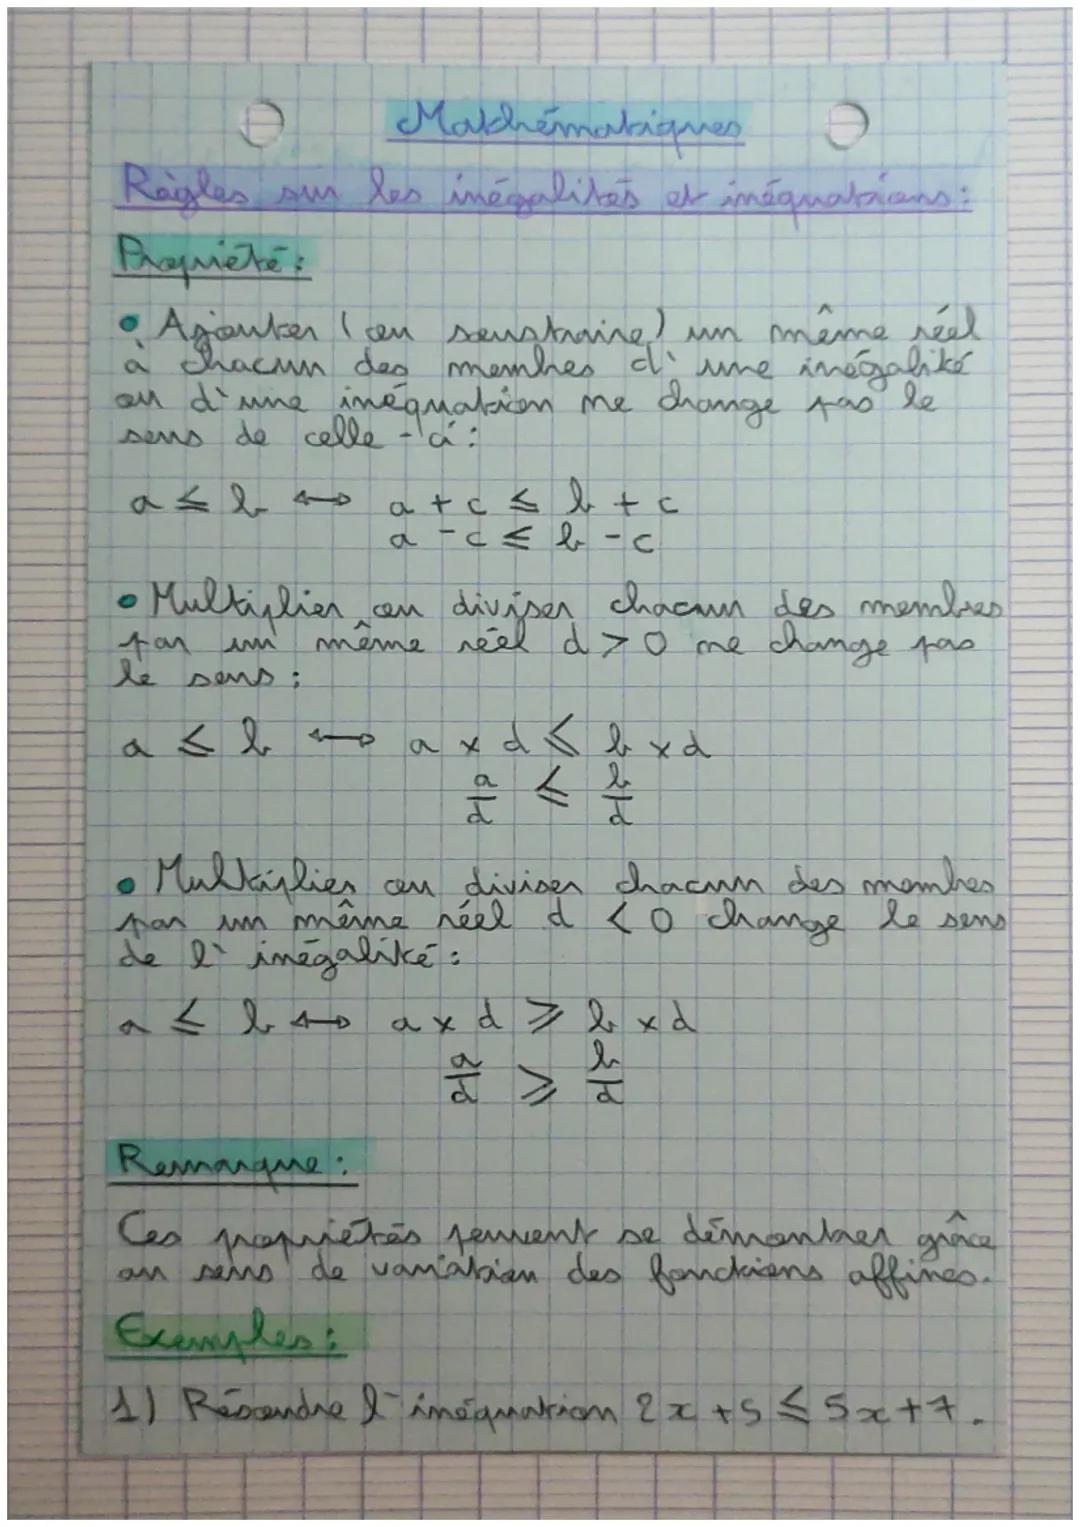 Mathématiques
Règles sur les inégalités et inéquations :
Propriété :
• Ajouter (ou soustraire) un même réel
à chacun des membres d'une inégalité
ou d'une inéquation ne change pas le
sens de celle-ci :
a ≤ b ↔ a + c ≤ b + c
a - c ≤ b - c
• Multiplier ou diviser chacun des membres
par un même réel d > 0 ne change pas
le sens :
a ≤ b ↔ a × d ≤ b × d
a/d ≤ b/d
• Multiplier ou diviser chacun des membres
par un même réel d < 0 change le sens
de l'inégalité :
a ≤ b ↔ a × d ≥ b × d
a/d ≥ b/d
Remarque :
Ces propriétés peuvent se démontrer grâce
au sens de variation des fonctions affines.
Exemples :
1) Résoudre l'inéquation 2x + 5 ≤ 5x + 7.